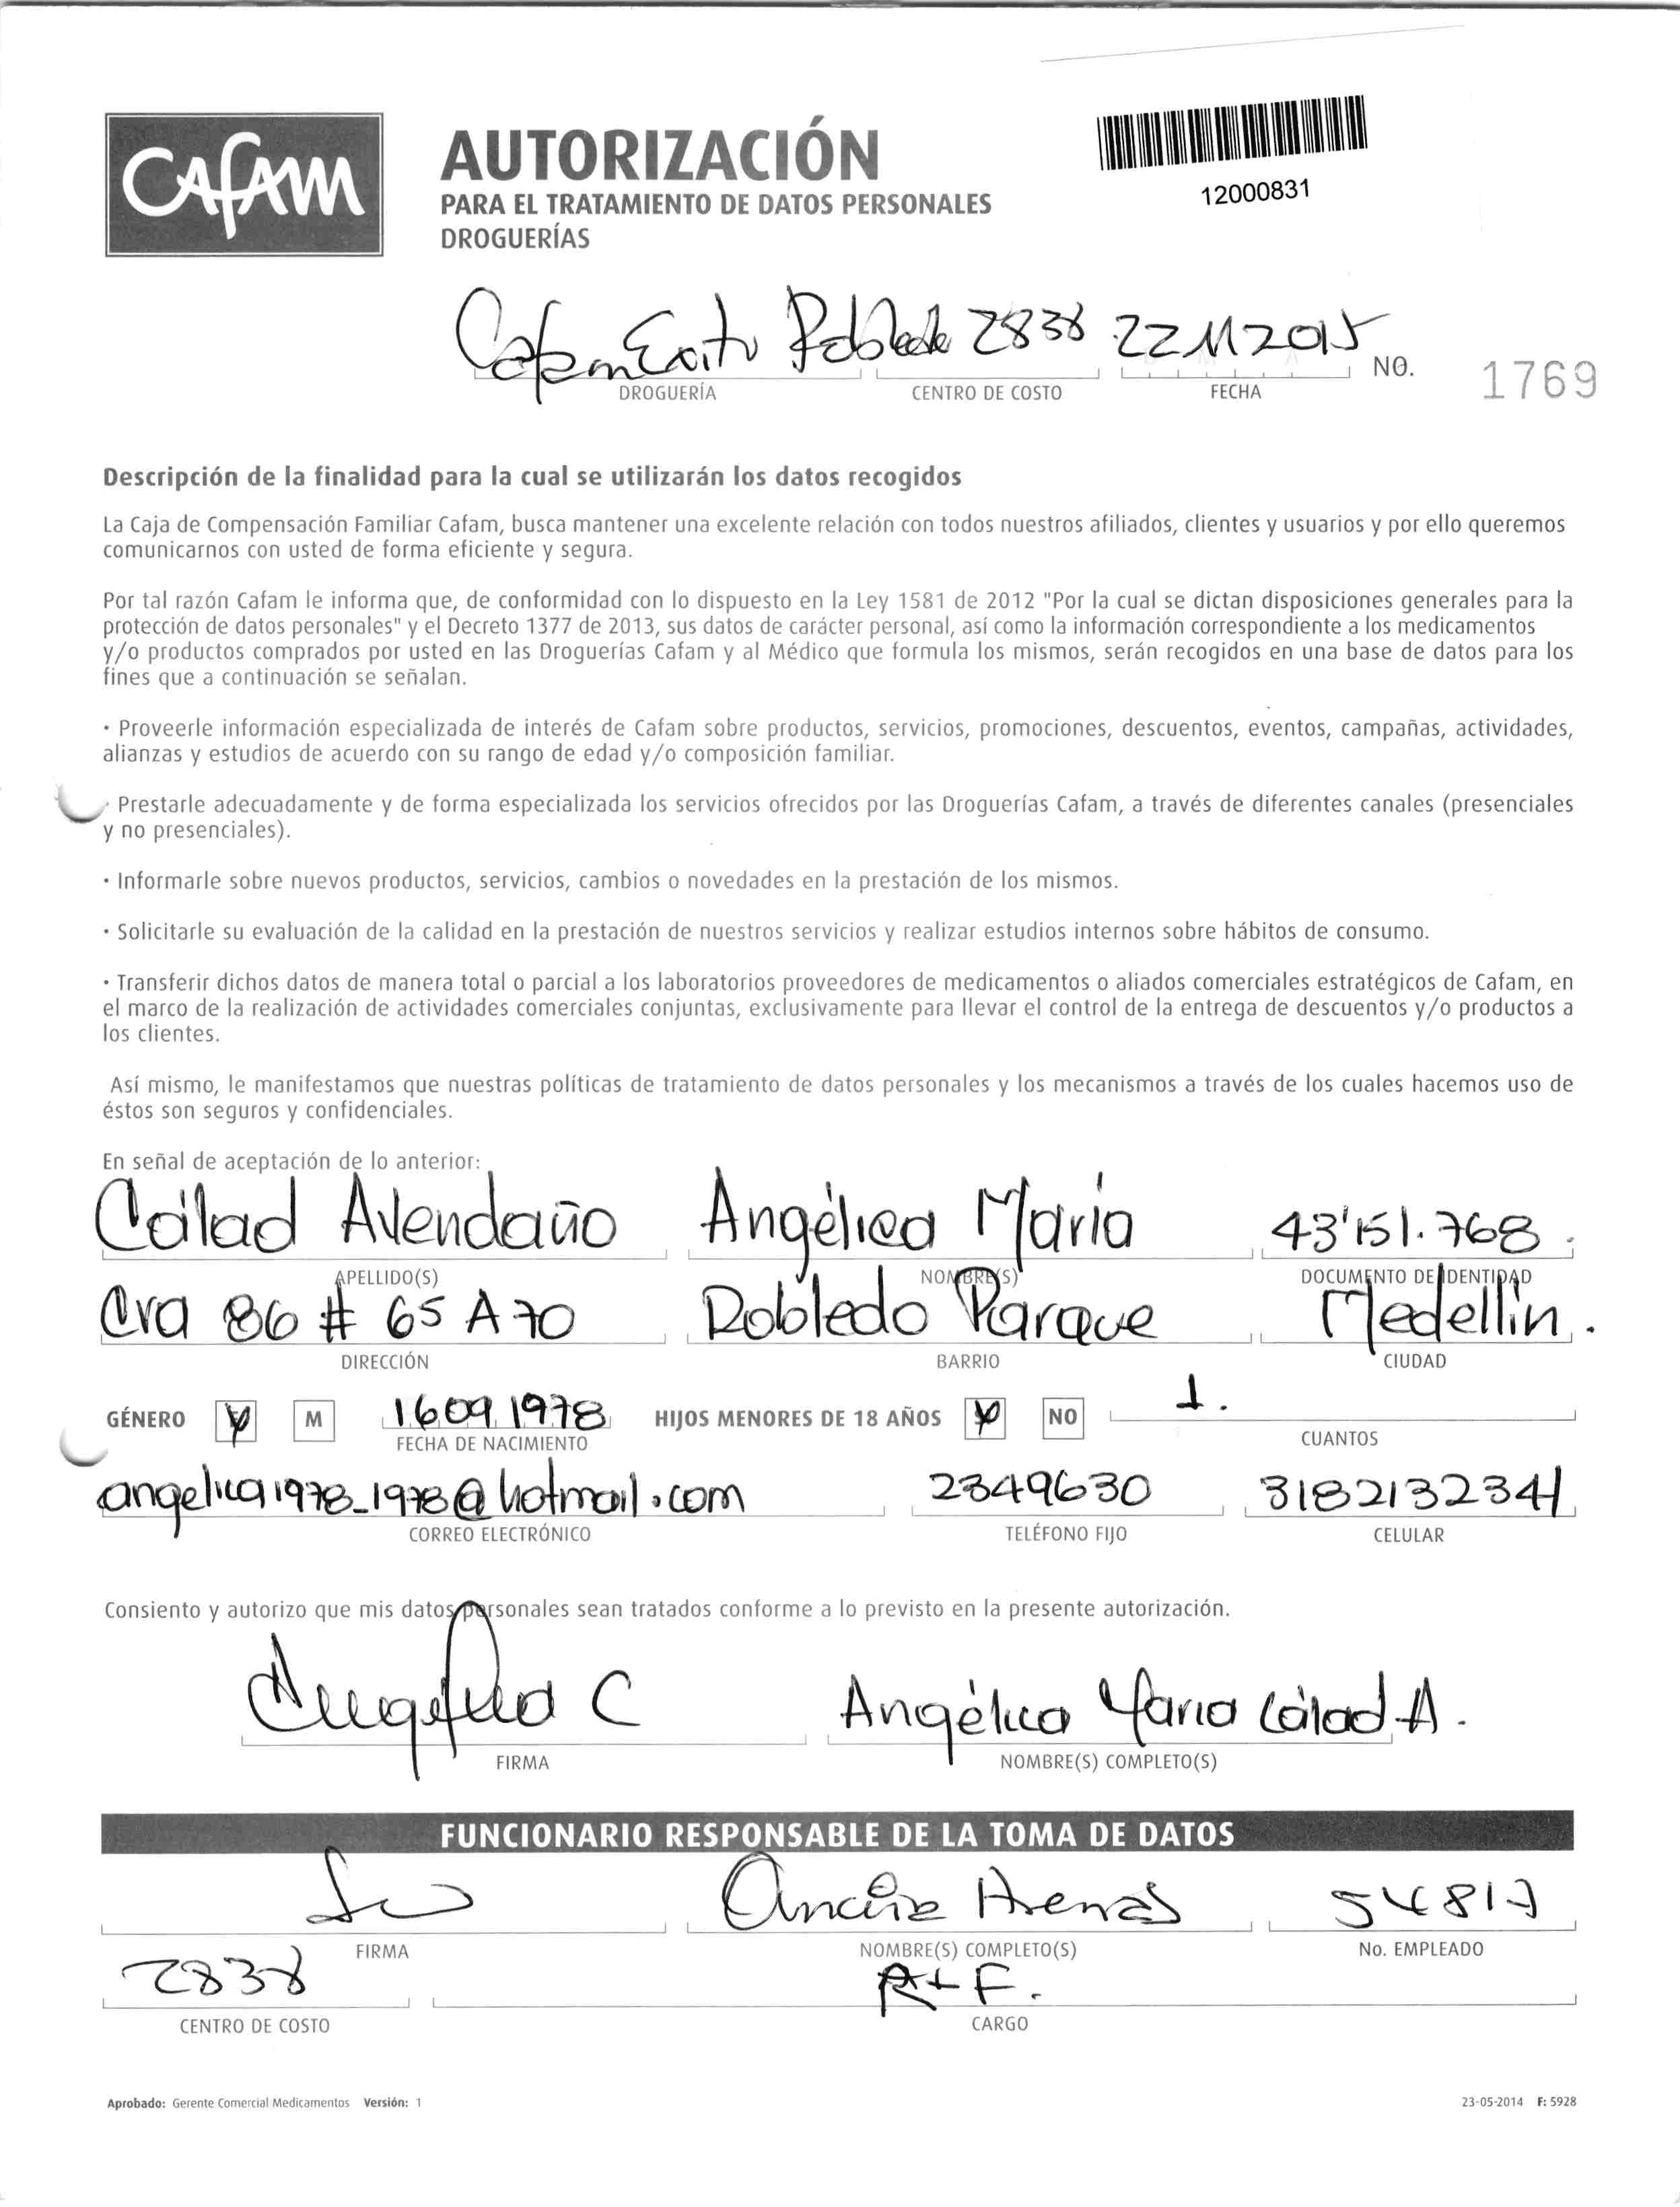 CAFAM
AUTORIZACIÓN
PARA EL TRATAMIENTO DE DATOS PERSONALES
DROGUERÍAS
12000831
Cafam Exito Robledo 2838 22112015
DROGUERÍA CENTRO DE COSTO FECHA NO. 1769
Descripción de la finalidad para la cual se utilizarán los datos recogidos
La Caja de Compensación Familiar Cafam, busca mantener una excelente relación con todos nuestros afiliados, clientes y usuarios y por ello queremos
comunicarnos con usted de forma eficiente y segura.
Por tal razón Cafam le informa que, de conformidad con lo dispuesto en la Ley 1581 de 2012 "Por la cual se dictan disposiciones generales para la
protección de datos personales" y el Decreto 1377 de 2013, sus datos de carácter personal, así como la información correspondiente a los medicamentos
y/o productos comprados por usted en las Droguerías Cafam y al Médico que formula los mismos, serán recogidos en una base de datos para los
fines que a continuación se señalan.
· Proveerle información especializada de interés de Cafam sobre productos, servicios, promociones, descuentos, eventos, campañas, actividades,
alianzas y estudios de acuerdo con su rango de edad y/o composición familiar.
· Prestarle adecuadamente y de forma especializada los servicios ofrecidos por las Droguerías Cafam, a través de diferentes canales (presenciales
y no presenciales).
· Informarle sobre nuevos productos, servicios, cambios o novedades en la prestación de los mismos.
· Solicitarle su evaluación de la calidad en la prestación de nuestros servicios y realizar estudios internos sobre hábitos de consumo.
· Transferir dichos datos de manera total o parcial a los laboratorios proveedores de medicamentos o aliados comerciales estratégicos de Cafam, en
el marco de la realización de actividades comerciales conjuntas, exclusivamente para llevar el control de la entrega de descuentos y/o productos a
los clientes.
Así mismo, le manifestamos que nuestras políticas de tratamiento de datos personales y los mecanismos a través de los cuales hacemos uso de
éstos son seguros y confidenciales.
En señal de aceptación de lo anterior:
Cálad Avendaño Angélica María 43'151.768.
APELLIDO(S) NOMBRE(S) DOCUMENTO DE IDENTIDAD
Cra 86 # 65 A 70 Robledo Parque Medellín.
DIRECCIÓN BARRIO CIUDAD
GÉNERO M 16091978 HIJOS MENORES DE 18 AÑOS NO 1.
FECHA DE NACIMIENTO CUANTOS
angelica1978_1978@hotmail.com 2349630 3182132341
CORREO ELECTRÓNICO TELÉFONO FIJO CELULAR
Consiento y autorizo que mis datos personales sean tratados conforme a lo previsto en la presente autorización.
Angelica C Angélica María Cálad A.
FIRMA NOMBRE(S) COMPLETO(S)
FUNCIONARIO RESPONSABLE DE LA TOMA DE DATOS
Arenas
FIRMA NOMBRE(S) COMPLETO(S) No. EMPLEADO
2838 R+F.
CENTRO DE COSTO CARGO
Aprobado: Gerente Comercial Medicamentos Versión: 1 23-05-2014 F: 5928